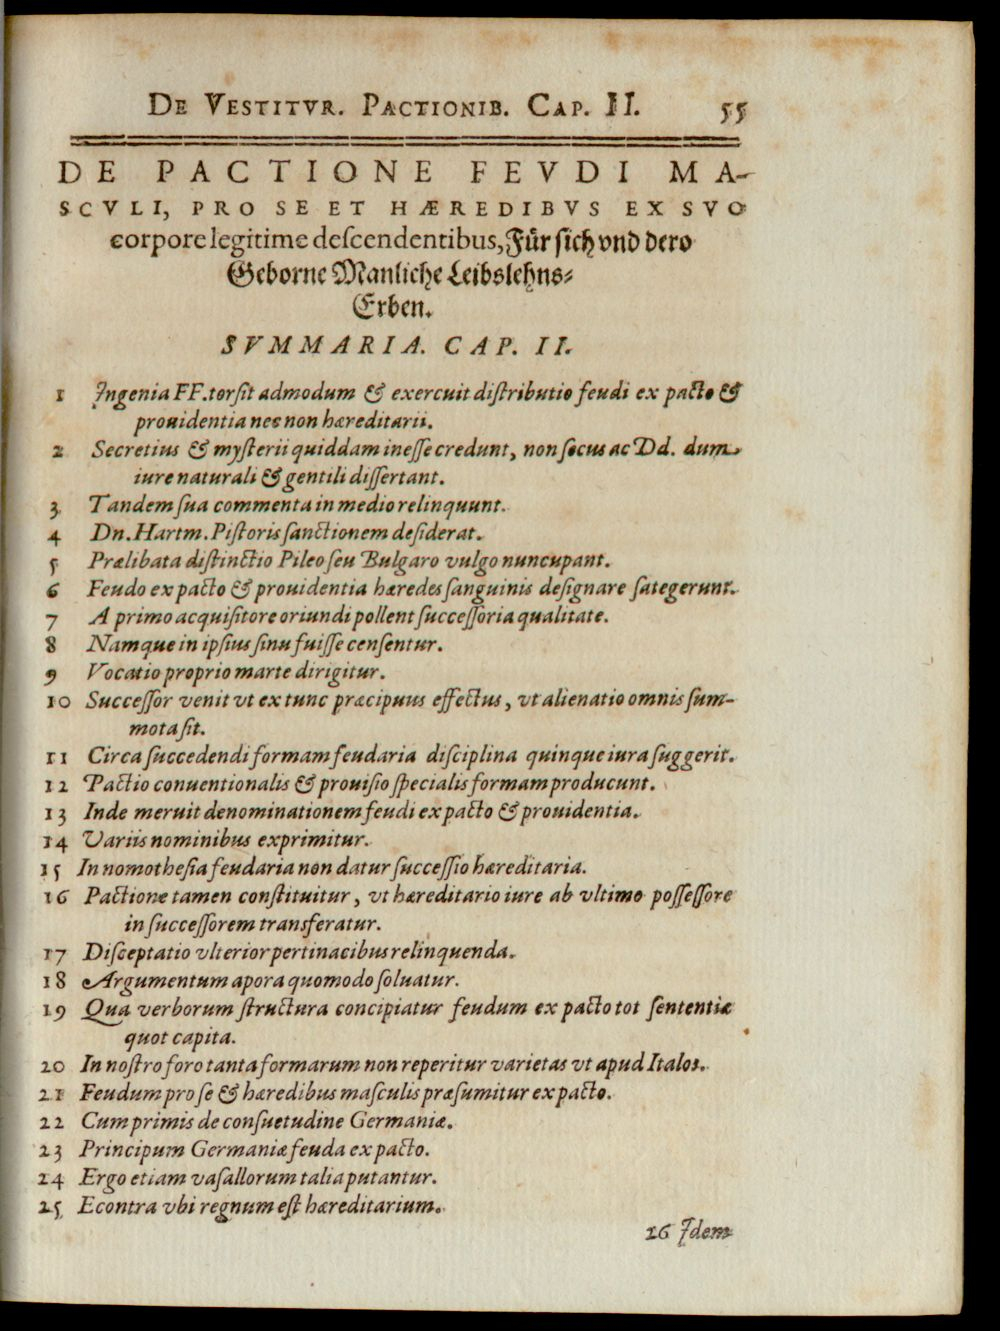 DE VESTITVR. PACTIONIB. CAP. II. 55
DE PACTIONE FEVDI MA-
SCVLI, PRO SE ET HÆREDIBVS EX SVO
corpore legitime deſcendentibus, Für ſich vnd dero
Geborne Manliche Leibslehns-
Erben.
SVMMARIA. CAP. II.
1 Ingenia FF. torſit admodum & exercuit diſtributio feudi ex pacto &
prouidentia nec non hæreditarii.
2 Secretius & myſterii quiddam ineſſe credunt, non ſecus ac Dd. dum
iure naturali & gentili diſſertant.
3 Tandem ſua commenta in medio relinquunt.
4 Dn. Hartm. Piſtoris ſanctionem deſiderat.
5 Prælibata diſtinctio Pileo ſeu Bulgaro vulgo nuncupant.
6 Feudo ex pacto & prouidentia hæredes ſanguinis deſignare ſategerunt.
7 A primo acquiſitore oriundi pollent ſucceſſoria qualitate.
8 Namque in ipſius ſinu fuiſſe cenſentur.
9 Vocatio proprio marte dirigitur.
10 Succeſſor venit vt ex tunc præcipuus effectus, vt alienatio omnis ſum-
mota ſit.
11 Circa ſuccedendi formam feudaria diſciplina quinque iura ſuggerit.
12 Pactio conuentionalis & prouiſio ſpecialis formam producunt.
13 Inde meruit denominationem feudi ex pacto & prouidentia.
14 Variis nominibus exprimitur.
15 In nomotheſia feudaria non datur ſucceſſio hæreditaria.
16 Pactione tamen conſtituitur, vt hæreditario iure ab vltimo poſſeſſore
in ſucceſſorem transferatur.
17 Diſceptatio vlterior pertinacibus relinquenda.
18 Argumentum apora quomodo ſoluatur.
19 Qua verborum ſtructura concipiatur feudum ex pacto tot ſententiæ
quot capita.
20 In noſtro foro tanta formarum non reperitur varietas vt apud Italos.
21 Feudum pro ſe & hæredibus maſculis præſumitur ex pacto.
22 Cum primis de conſuetudine Germaniæ.
23 Principum Germaniæ feuda ex pacto.
24 Ergo etiam vaſallorum talia putantur.
25 Econtra vbi regnum eſt hæreditarium.
26 Idem